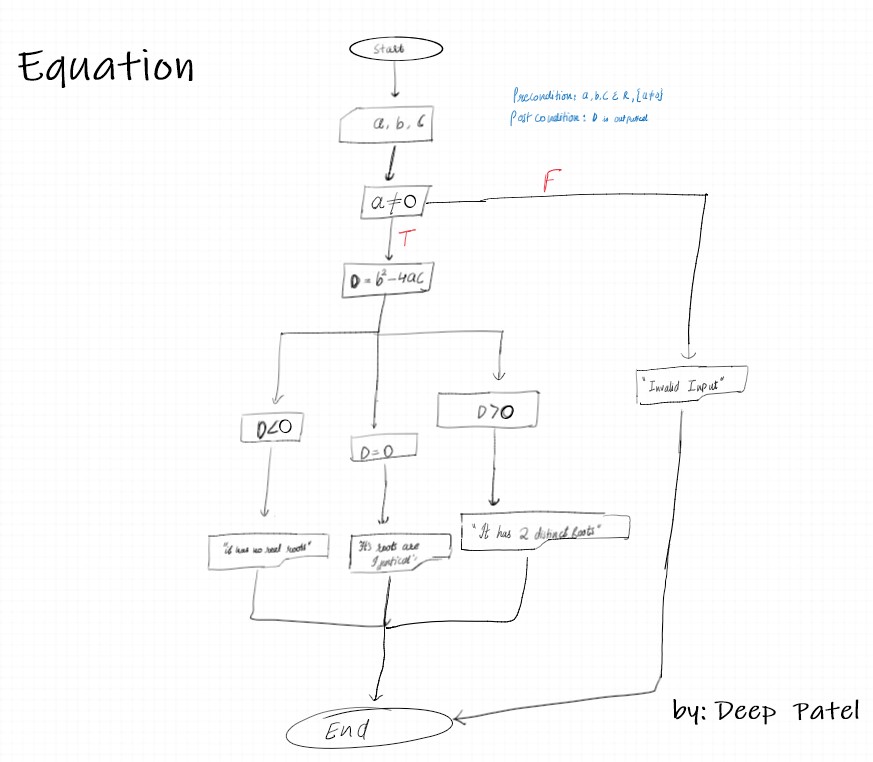 Equation
Start
Precondition: a, b, C ε R, {a≠0}
Post condition: D is outputted
a, b, C
F
a≠0
T
D = b² - 4ac
"Invalid Input"
D<0
D=0
D>0
"it has no real roots"
It's roots are
"It has 2 distinct Roots"
by: Deep Patel
End